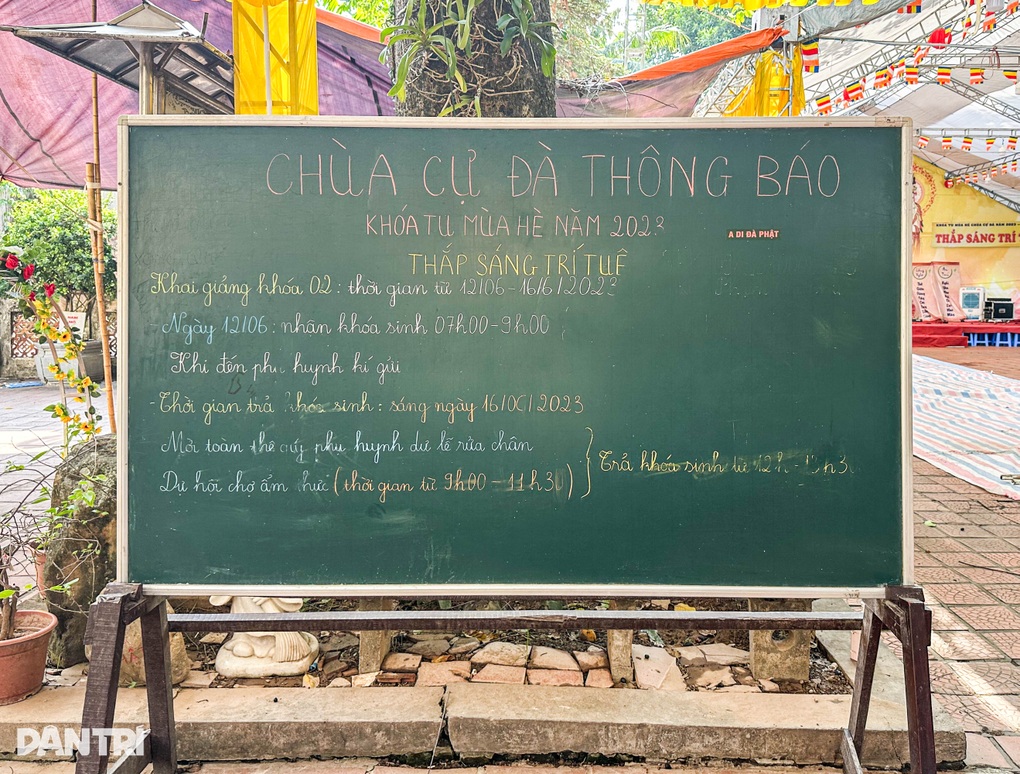 CHÙA CỰ ĐÀ THÔNG BÁO
KHÓA TU MÙA HÈ NĂM 2023
A DI ĐÀ PHẬT
THẮP SÁNG TRÍ TUỆ
Khai giảng khóa 02: thời gian từ 12/06-16/6/2023
Ngày 12/06: nhận khóa sinh 07h00-9h00
Khi đến phụ huynh kí gửi
- Thời gian trả khóa sinh: sáng ngày 2023
Mời toàn thể phụ huynh dự lễ rửa chân
Dự hội chợ ẩm thực (thời gian từ 9h00-11h30)
Trả khóa sinh từ 12h
THẮP SÁNG TRÍ
DÂN TRÍ